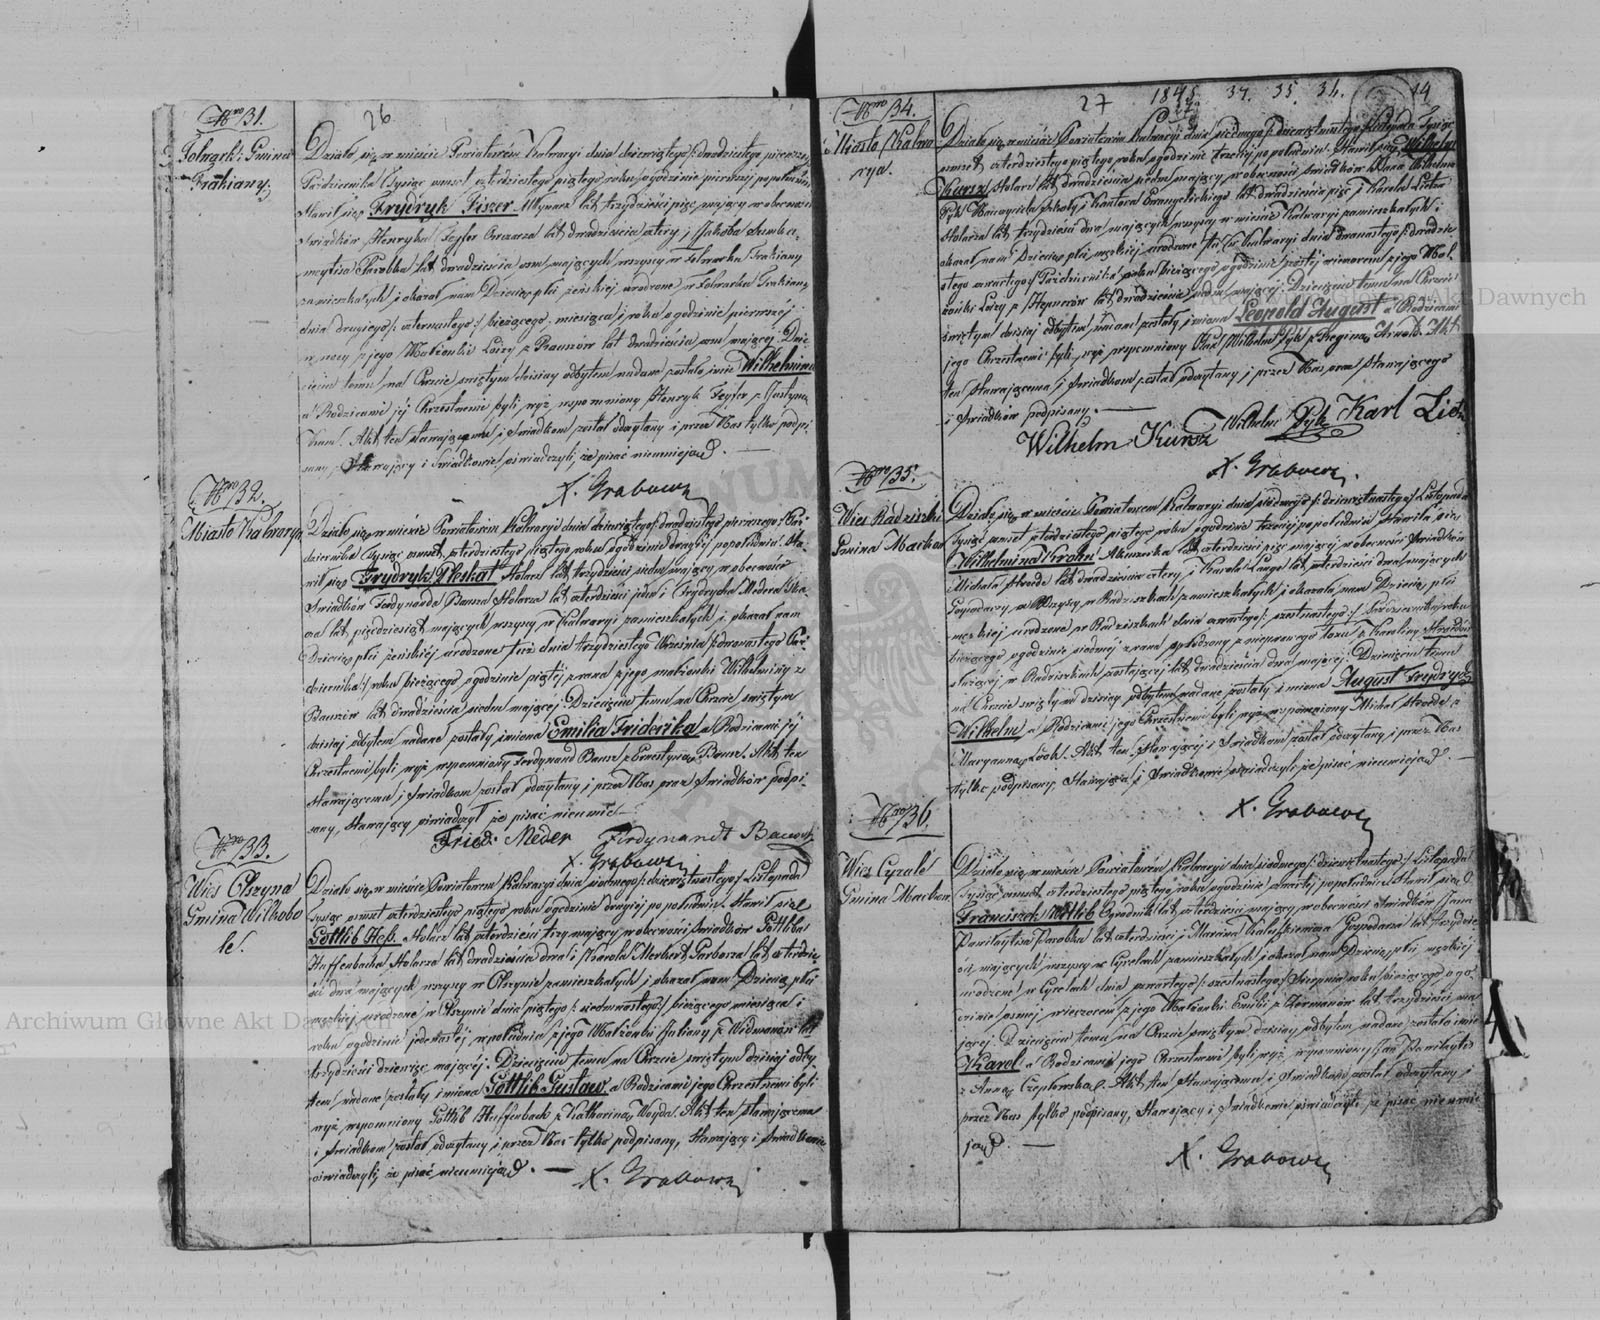 26
Nro 31.
Folwark i Gmina
Trakiany.
Działo się w mieście Powiatowém Kalwaryi dnia dziewiątego /: dwudziestego pierwszego
Października Tysiąc ośmset czterdziestego piątego roku o godzinie pierwszéj po południu
stawił się Frydryk Fiszer Młynarz lat trzydzieści pięć mający w obecności
Świadków Henryka Fejfer Owczarza lat dwadzieścia cztery i Jakóba
Parobka lat dwadzieścia osm mających wszyscy w Folwarku Trakiany
zamieszkałych i okazał nam Dziecię płci żeńskiej urodzone w Folwarku Trakiany
dnia drugiego /: czternastego :/ bieżącego miesiąca i roku o godzinie pierwszéj
w nocy z jego Małżonki Loizy z lat dwadzieścia osm mającej. Dzie-
cięciu temu na Chrzcie świętym dzisiay odbytem nadane zostało imie Wilhelmina
a Rodzicami jéj Chrzestnemi byli wyż wspomniony Henryk Fejfer z Justyną
Akt ten stawającemu i Świadkom został odczytany i przez Nas tylko podpi-
sany, Stawający i Świadkowie oświadczyli, że pisać nieumieją.
X. Grabows
Nro 32.
Miasto Kalwarya
Działo się w mieście Powiatowem Kalwaryi dnia dziewiątego /: dwudziestego pierwszego :/ Paź-
dziernika Tysiąc ośmset czterdziestego piątego roku o godzinie drugiéj po południu. Sta-
wił się Frydryk Pleskat Stolarz lat trzydzieści siedm mający w obecności
Świadków Ferdynanda Bausza Stolarza lat czterdzieści jeden i Frydrycha Medera
lat pięćdziesiąt mających wszyscy w Kalwaryi zamieszkałych i okazał nam
Dziecię płci żeńskiéj urodzone tuż dnia trzydziestego Września /: dwunastego Paź-
dziernika :/ roku bieżącego o godzinie piątéj z rana z jego małżonki Wilhelminy z
Bauszów lat dwadzieścia siedm mającej. Dziecięciu temu na Chrzcie świętym
dzisiaj odbytem nadane zostały imiona Emilia Friderika a Rodzicami jéj
Chrzestnemi byli wyż wspomniony Ferdynand Bausz z Ernestyną Bausz. Akt ten
stawającemu i Świadkom został odczytany i przez Nas oraz Świadków podpi-
sany, stawający oświadczył że pisać nieumie
Fried. Meder Ferdynandt Bausch
X. Grabows
Nro 33.
Wieś Olszyna
Gmina Wilkobo
le.
Działo się w mieście Powiatowem Kalwaryi dnia siódmego /: dziewiętnastego :/ Listopada
Tysiąc ośmset czterdziestego piątego roku o godzinie drugiéj po południu. Stawił się
Gottlib Heß. Stolarz lat czterdzieści trzy mający w obecności Świadków Gottliba
Huffenbacha Stolarza lat dwadzieścia dwa i Karola Merkert Garbarza lat czterdzie-
ści dwa mających, wszyscy w Olszynie zamieszkałych i okazał nam Dziecię płci
męzkiej urodzone w Olszynie dnia piątego /: siedmnastego :/ bieżącego miesiąca i
roku o godzinie jedenastéj w południe z jego Małżonki Julianny z Widmanów lat
trzydzieści dziewięć mającej: Dziecięciu temu na Chrzcie świętym dzisiaj odby-
tem nadane zostały imiona Gottlib Gustaw a Rodzicami jego Chrzestnemi byli
wyż wspomniony Gottlib Huffenbach z Katharina Woyda. Akt ten stawającemu
i Świadkom został odczytany i przez Nas tylko podpisany, stawający i Świadkowie
oświadczyli, że pisać nieumieją. —
X. Grabows
27 1845 37. 35. 34. 14
Nro 34.
Miasto Kalwa
rya.
Działo się w mieście Powiatowém Kalwaryi dnia siódmego /: dziewiętnastego :/ Listopada Tysiąc
ośmset czterdziestego piątego roku o godzinie trzeciej po południu. Stawił się Wilhelm
Kursz Stolarz lat dwadzieścia siedm mający, w obecności Świadków Pana Wilhelma
Pyk Nauczyciela Szkoły i Kantora Ewangelickiego lat dwadzieścia pięć i Karola Lietza
Stolarza lat trzydzieści dwa mających wszyscy w mieście Kalwaryi zamieszkałych i
okazał nam Dziecię płci męzkiej urodzone tu w Kalwaryi dnia dwunastego /: dwudzie-
stego czwartego :/ Października roku bieżącego o godzinie szóstej wieczorem z jego Mał-
żonki Loizy z lat dwadzieścia siedm mającej. Dziecięciu temu na Chrzcie
świętym dzisiaj odbytem nadane zostały imiona Leopold August a Rodzicami
jego Chrzestnemi byli, wyż wspomniony Pan Wilhelm Pyk z Regina Akt
ten stawającemu i Świadkom został odczytany i przez Nas oraz Stawającego
i Świadków podpisany. —
Wilhelm Kursz Wilhelm Pyk Karl Lietz
X. Grabows
Nro 35.
Wieś Radziszki
Gmina Maikow
Działo się w mieście Powiatowem Kalwaryi dnia siódmego /: dziewiętnastego :/ Listopada
Tysiąc ośmset czterdziestego piątego roku o godzinie trzeciej po południu Stawiła się
Wilhelmina Krohn Akuszerka lat czterdzieści pięć mająca w obecności Świadków
Michała lat dwadzieścia cztery i Karola Lange lat czterdzieści dwa mających
Gospodarzy, w Wszyscy w Radziszkach zamieszkałych i okazała nam Dziecię płci
męzkiej urodzone w Radziszkach dnia czwartego /: szesnastego :/ Października roku
bieżącego o godzinie siódmej z rana spłodzony z nieprawego łoża z Karoliny
służącej w Radziszkach zostającej lat dwadzieścia dwa mającej. Dziecięciu temu
na Chrzcie świętym dzisiaj odbytem nadane zostały imiona August Frydryck
Wilhelm a Rodzicami jego Chrzestnemi byli wyż wspomniony Michał z
Maryanną Akt ten Stawającéj i Świadkom został odczytany i przez Nas
tylko podpisany, Stawająca i Świadkowie oświadczyli że pisać nieumieją. —
X. Grabows
Nro 36.
Wieś Cyrale
Gmina Maikow.
Działo się w mieście Powiatowém Kalwaryi dnia siódmego /: dziewiętnastego :/ Listopada
Tysiąc ośmset czterdziestego piątego roku o godzinie czwartej po południu. Stawił się
Franciszek Ogrodnik lat czterdzieści mający w obecności Świadków Jana
Parobka lat czterdzieści i Marcina Gospodarza lat trzydzie-
ści mających wszyscy w Cyrelach zamieszkałych i okazał nam Dziecię płci męzkiej
urodzone w Cyrelach dnia czwartego /: szesnastego :/ Sierpnia roku bieżącego o go-
dzinie ósmej wieczorem z jego Małżonki Emilii z Hermanów lat trzydzieści ma-
jącej. Dziecięciu temu na Chrzcie świętym dzisiay odbytem nadane zostało imie
Karol a Rodzicami jego Chrzestnemi byli wyż wspomniony Jan
z Anną Akt ten Stawającemu i Świadkom został odczytany i
przez Nas tylko podpisany, Stawający i Świadkowie oświadczyli że pisać nieumie
ją. —
X. Grabows
Archiwum Główne Akt Dawnych
Archiwum Główne Akt Dawnych